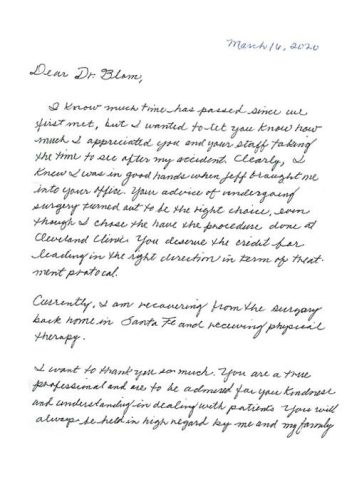 March 16, 2020
Dear Dr. Blom,
I know much time has passed since we
first met, but I wanted to let you know how
much I appreciated you and your staff taking
the time to see after my accident. Clearly, I
knew I was in good hands when Jeff brought me
into your office. Your advice of undergoing
surgery turned out to be the right choice, even
though I chose the have the procedure done at
Cleveland Clinic. You deserve the credit for
leading in the right direction in term of treat-
ment protocal.
Currently, I am recovering from the surgery
back home in Santa Fe and receiving physical
therapy.
I want to thank you so much. You are a true
professional and are to be admired for you kindness
and understanding in dealing with patients. You will
always be held in high regard by me and my family